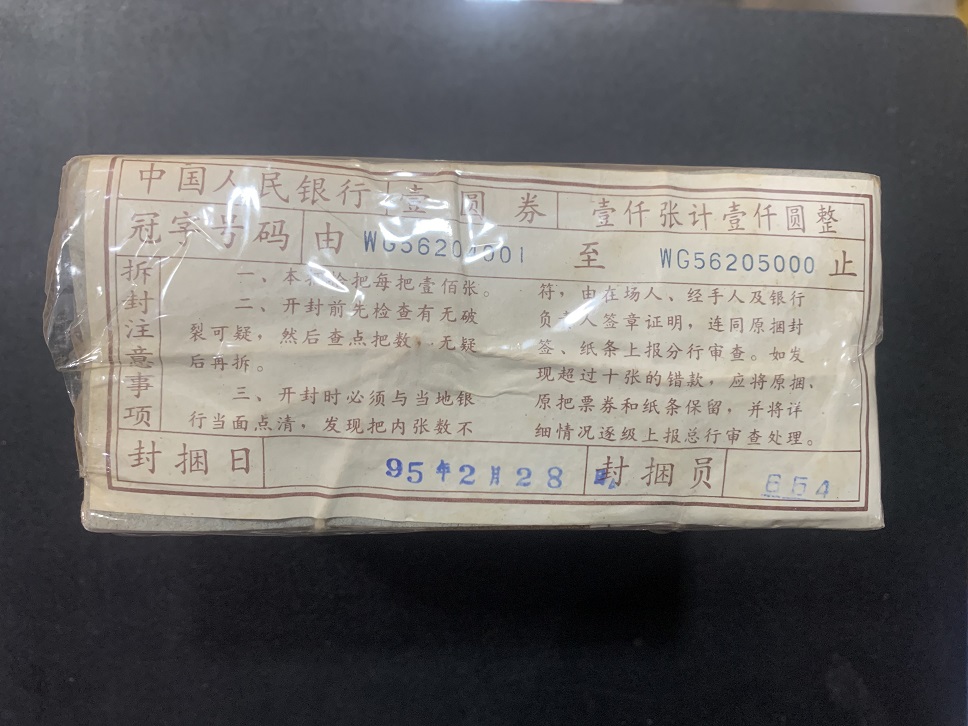 中国人民银行 壹圆券 壹仟张计壹仟圆整
冠字号码 由 WG56204001 至 WG56205000 止
拆封注意事项
一、本 把每把壹佰张。
二、开封前先检查有无破
裂可疑，然后查点把数，无疑
后再拆。
三、开封时必须与当地银
行当面点清，发现把内张数不
符，由在场人、经手人及银行
负责人签章证明，连同原捆封
签、纸条上报分行审查。如发
现超过十张的错款，应将原捆、
原把票券和纸条保留，并将详
细情况逐级上报总行审查处理。
封捆日 95年2月28 封捆员